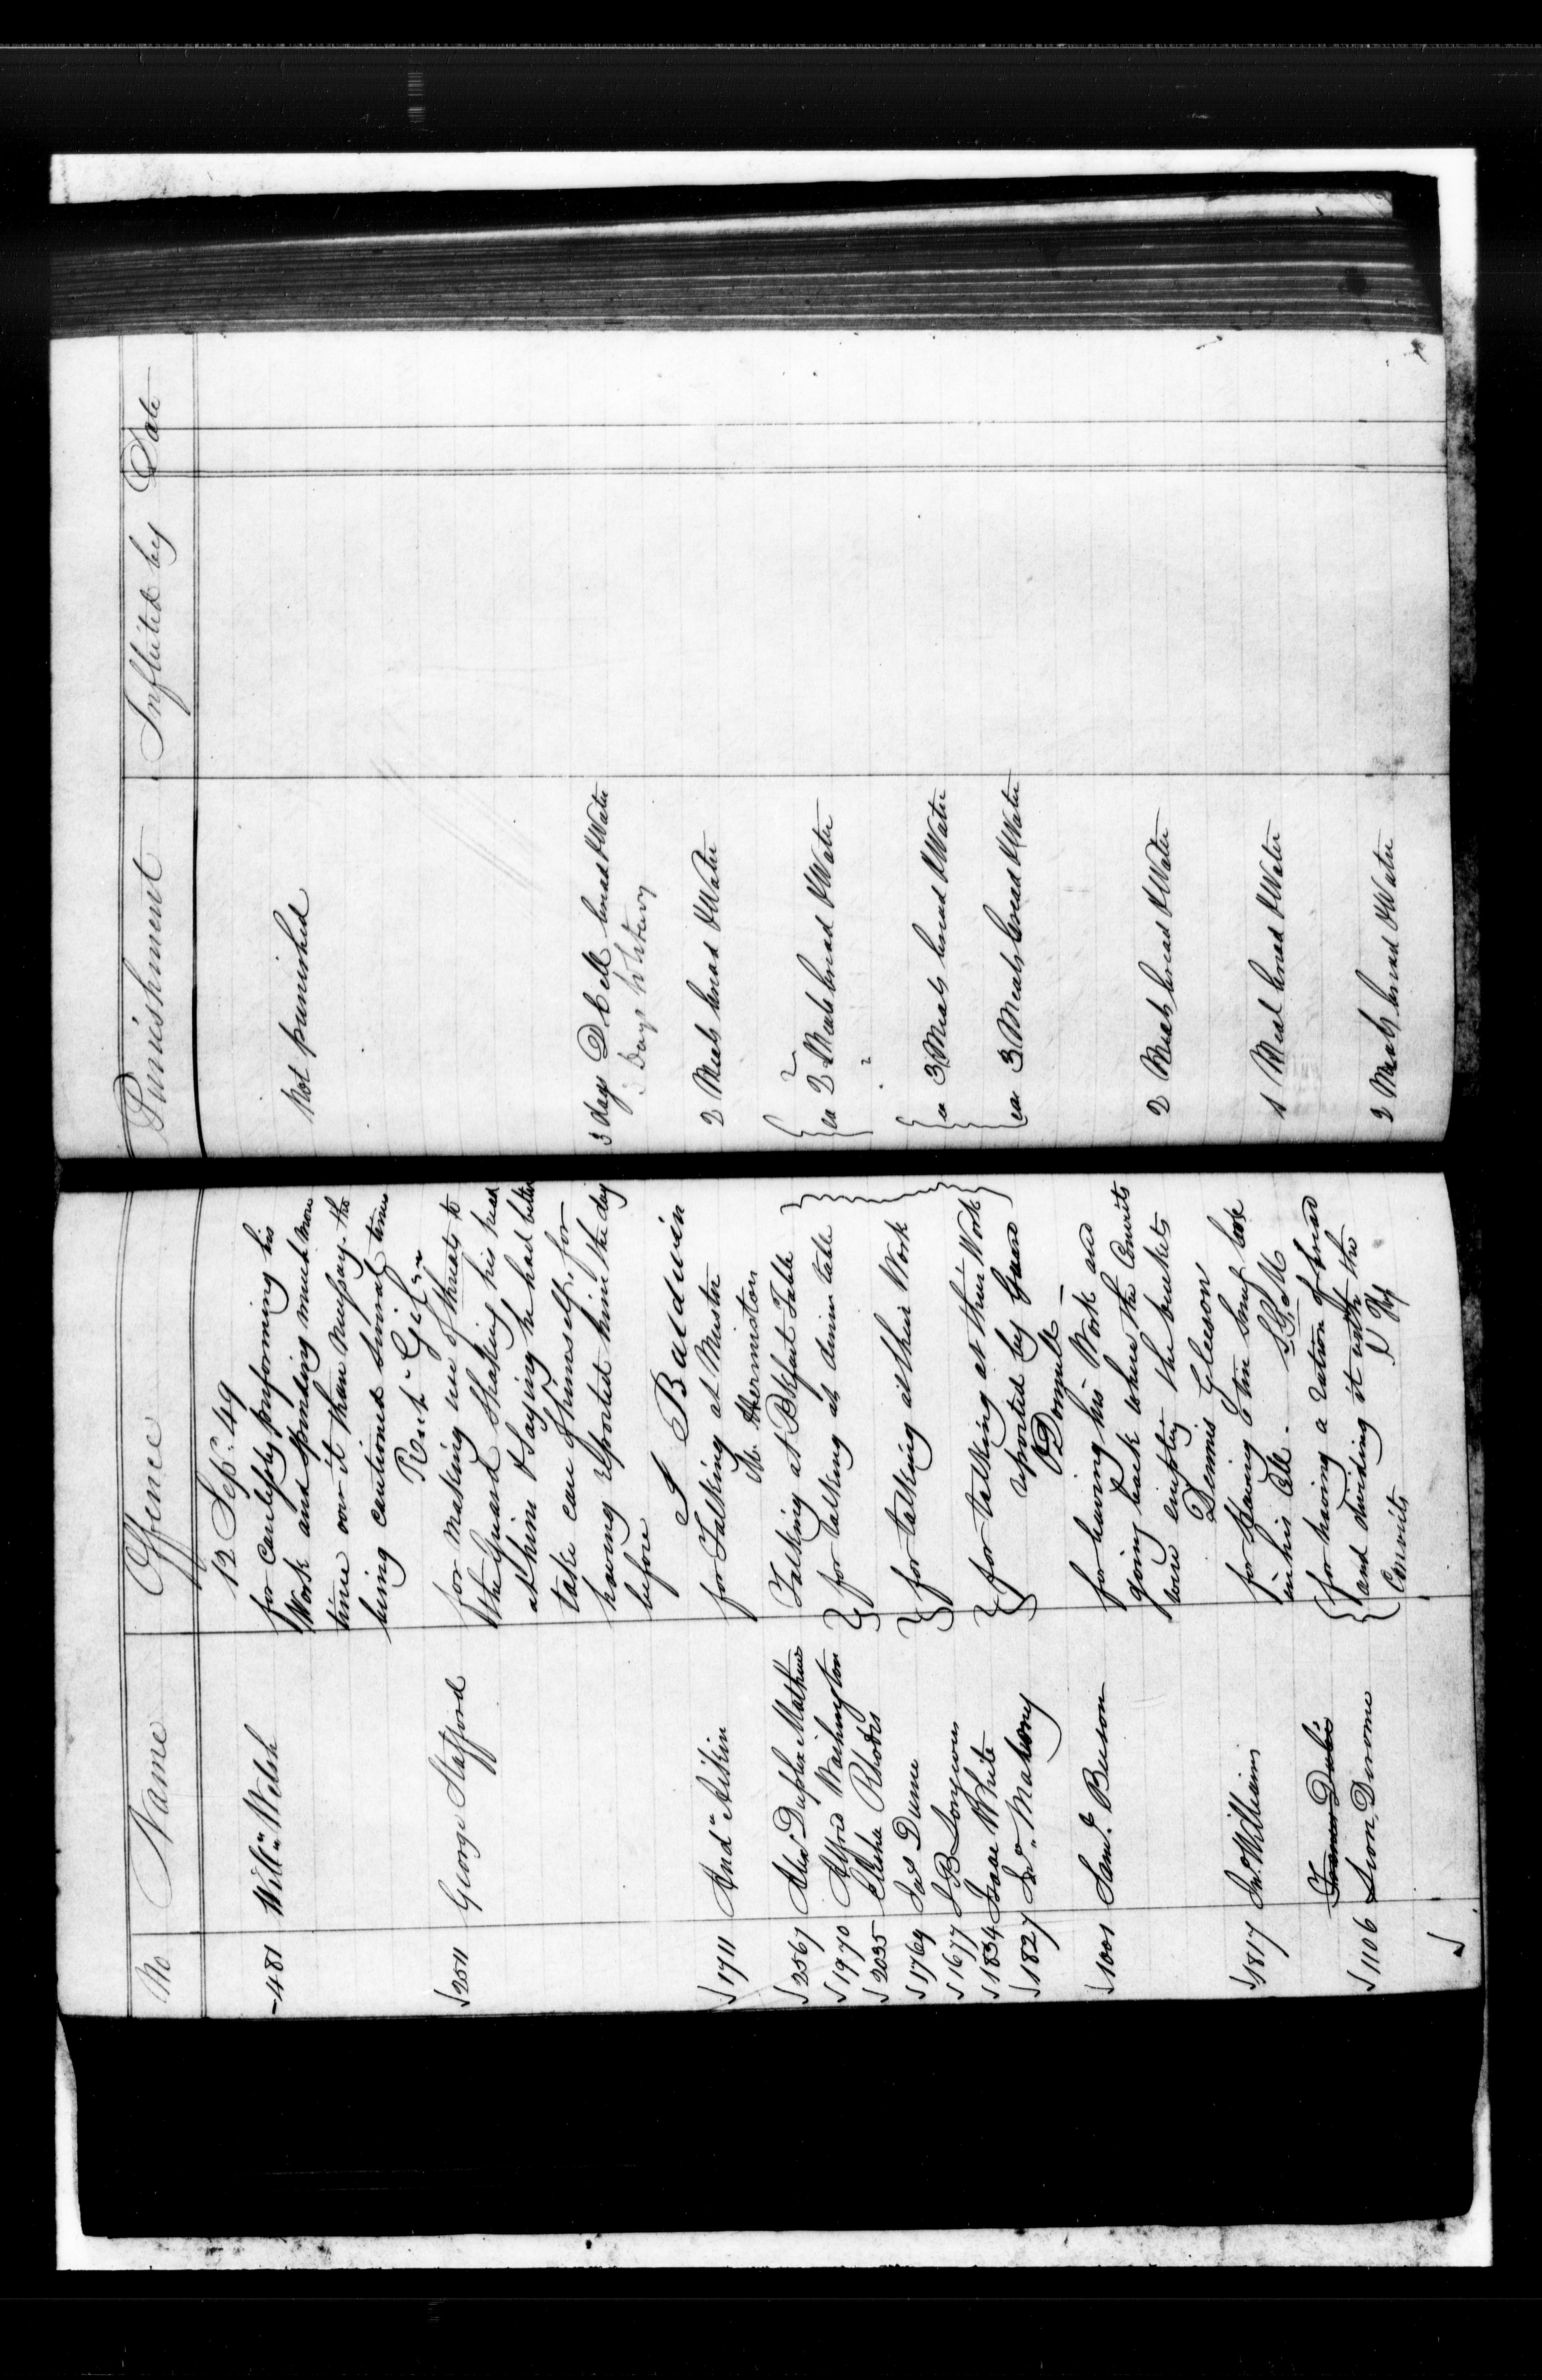 No Name Offence Punishment Inflicted by Date
12 Sept. 49
481 Willm Welsh for carelessly performing his
Work and spending much more
time over it than necessary. tho
being cautioned several times Not punished
2511 George Stafford for making use of threats to
the Guard Shaking his head
at him & Saying he had better
take care of himself, for
having reported him the day 3 days D Cell bread & Water
before
J Baldwin
1711 Andw Aikin for Talking at Muster 2 Meals bread & Water
M. Hermiston
2567 Alexr Duplex Mathew Talking at Bkfast Table
1970 Alfred Washington for talking at dinner table ea 2 Meals bread & Water
2035 Elisha Rhodes
1769 Jas Dunn for talking at their Work
1677 J B Longwin ea 3 Meals bread & Water
1834 Isaac White for talking at their Work
1827 Jno. Mahony reported by Guard ea 3 Meals bread & Water
O'Donnell
1001 Saml. Buson for leaving his Work and
going back where the Convicts
were emptying the buckets 2 Meals bread & Water
Dennis Gleeson
1817 Jno. Williams for having 6 tin
in his Cell. 1 Meal bread & Water
for having a ration of bread
1106 Leon Derome and dividing it with the 2 Meals bread & Water
Convicts